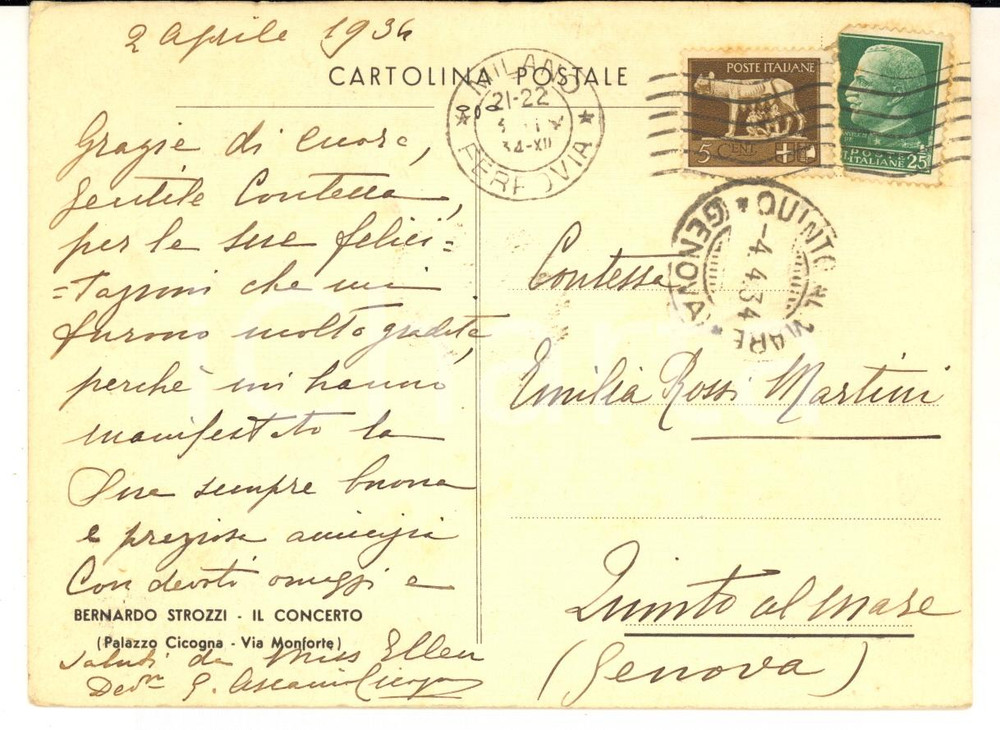 2 aprile 1934
CARTOLINA POSTALE
MILANO
21-22
34-XII
FERROVIA
POSTE ITALIANE
5 CENT.
POSTE
ITALIANE 25
QUINTO AL MARE
-4.4.34
(GENOVA)
Grazie di cuore,
gentile Contessa,
per le sue felici=
=tazioni che mi
furono molto gradite,
perchè mi hanno
manifestato la
Sua sempre buona
e preziosa amicizia
Con devoti omaggi e
BERNARDO STROZZI - IL CONCERTO
(Palazzo Cicogna - Via Monforte)
saluti da Miss Ellen
Dev.mo G. Ascanio Cicogna
Contessa
Emilia Rossi Martini
Quinto al mare
(Genova)